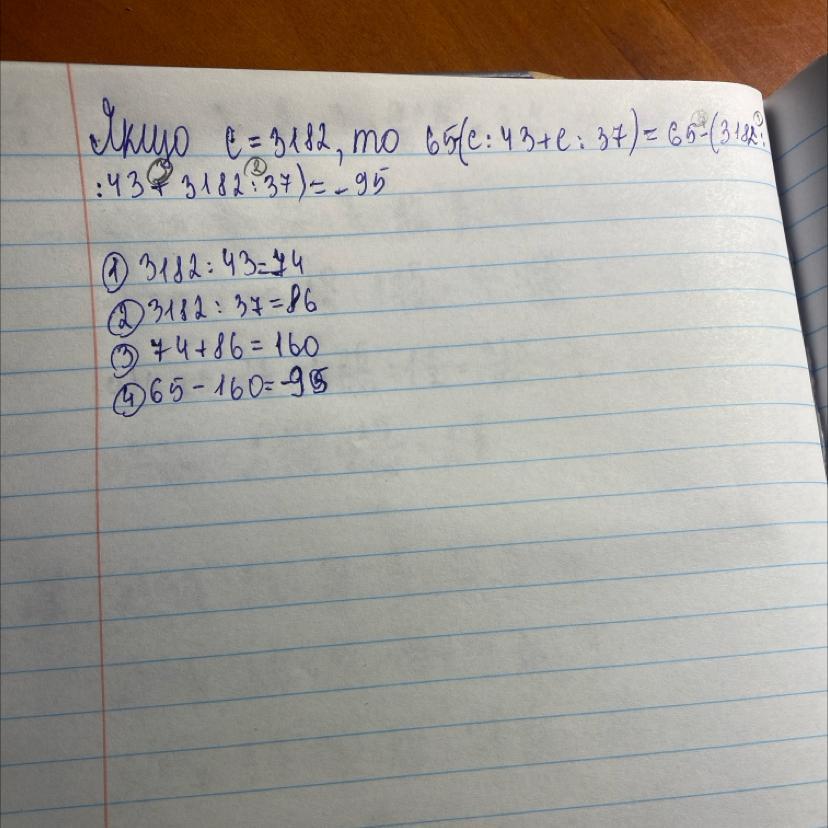 Якщо c = 3182, то 65(c : 43 + c : 37) = 65 - (3182 :
: 43 + 3182 : 37) = - 95
① 3182 : 43 = 74
② 3182 : 37 = 86
③ 74 + 86 = 160
④ 65 - 160 = -95